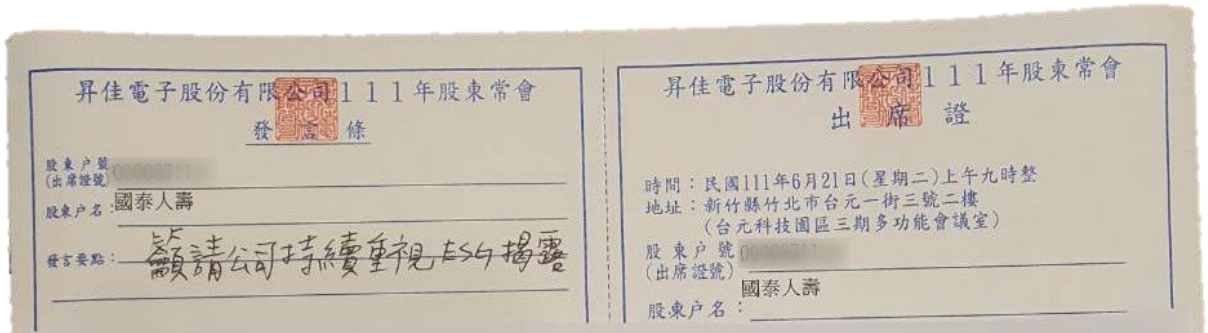 昇佳電子股份有限公司111年股東常會
發言條
股東户號
(出席證號)
股東户名：國泰人壽
發言要點：籲請公司持續重視ESG揭露
昇佳電子股份有限公司111年股東常會
出席證
時間：民國111年6月21日(星期二)上午九時整
地址：新竹縣竹北市台元一街三號二樓
(台元科技園區三期多功能會議室)
股東户號
(出席證號)
國泰人壽
股東户名：